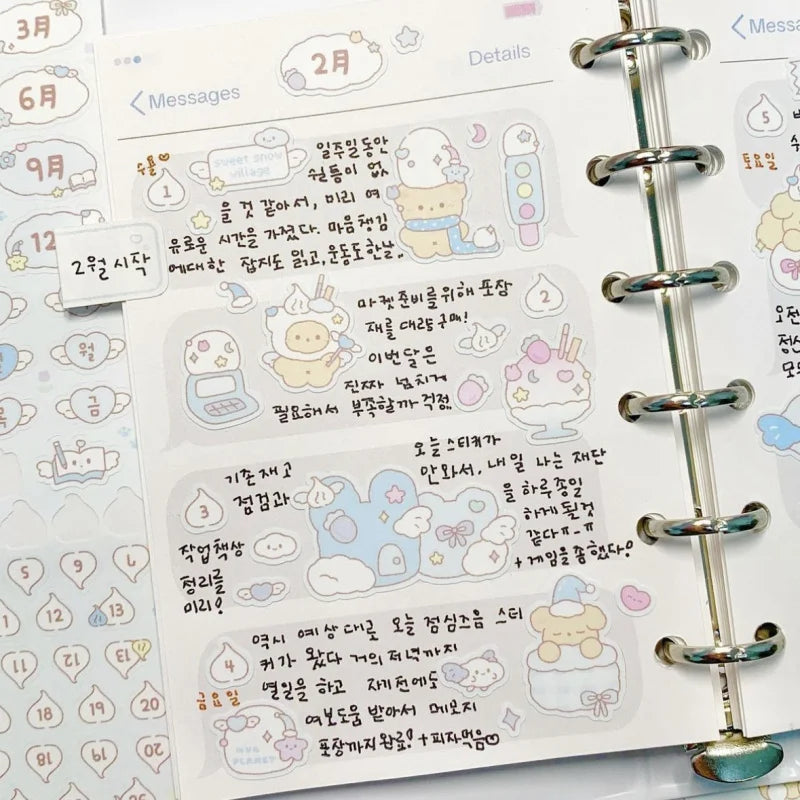 3月
6月
9月
12
2월 시작
월
금
5
9
12
13
11
12
13
18
19
20
19
18
20
2月
Messages
Details
수욜
1
sweet snow
village
일주일동안
쉴틈이 없
을 것 같아서, 미리 여
유로운 시간을 가졌다. 마음챙김
에대한 잡지도 읽고, 운동도 한날..
2
마켓준비를 위해 포장
재를 대량구매!
이번달은
진짜 넘치게
필요해서 부족할까 걱정.
3
기존재고
점검과
작업책상
정리를
미리!
오늘 스티커가
안와서, 내일 나는 재단
을 하루종일
하게 될것
같다ㅠ-ㅠ
+ 게임을 좀했다!
4
금요일
역시 예상대로 오늘 점심즈음 스티
커가 왔다 거의 저녁까지
열일을 하고 자기전에도
여보도움 받아서 메모지
포장까지 완료! + 피자먹음
PLANET
Messa
5
토요일
오전
정신
모